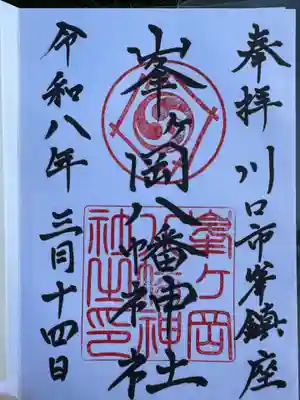 奉拝 川口市峯鎮座
峯ヶ岡八幡神社
令和八年 三月十四日
峯ヶ岡
八幡神
社之印